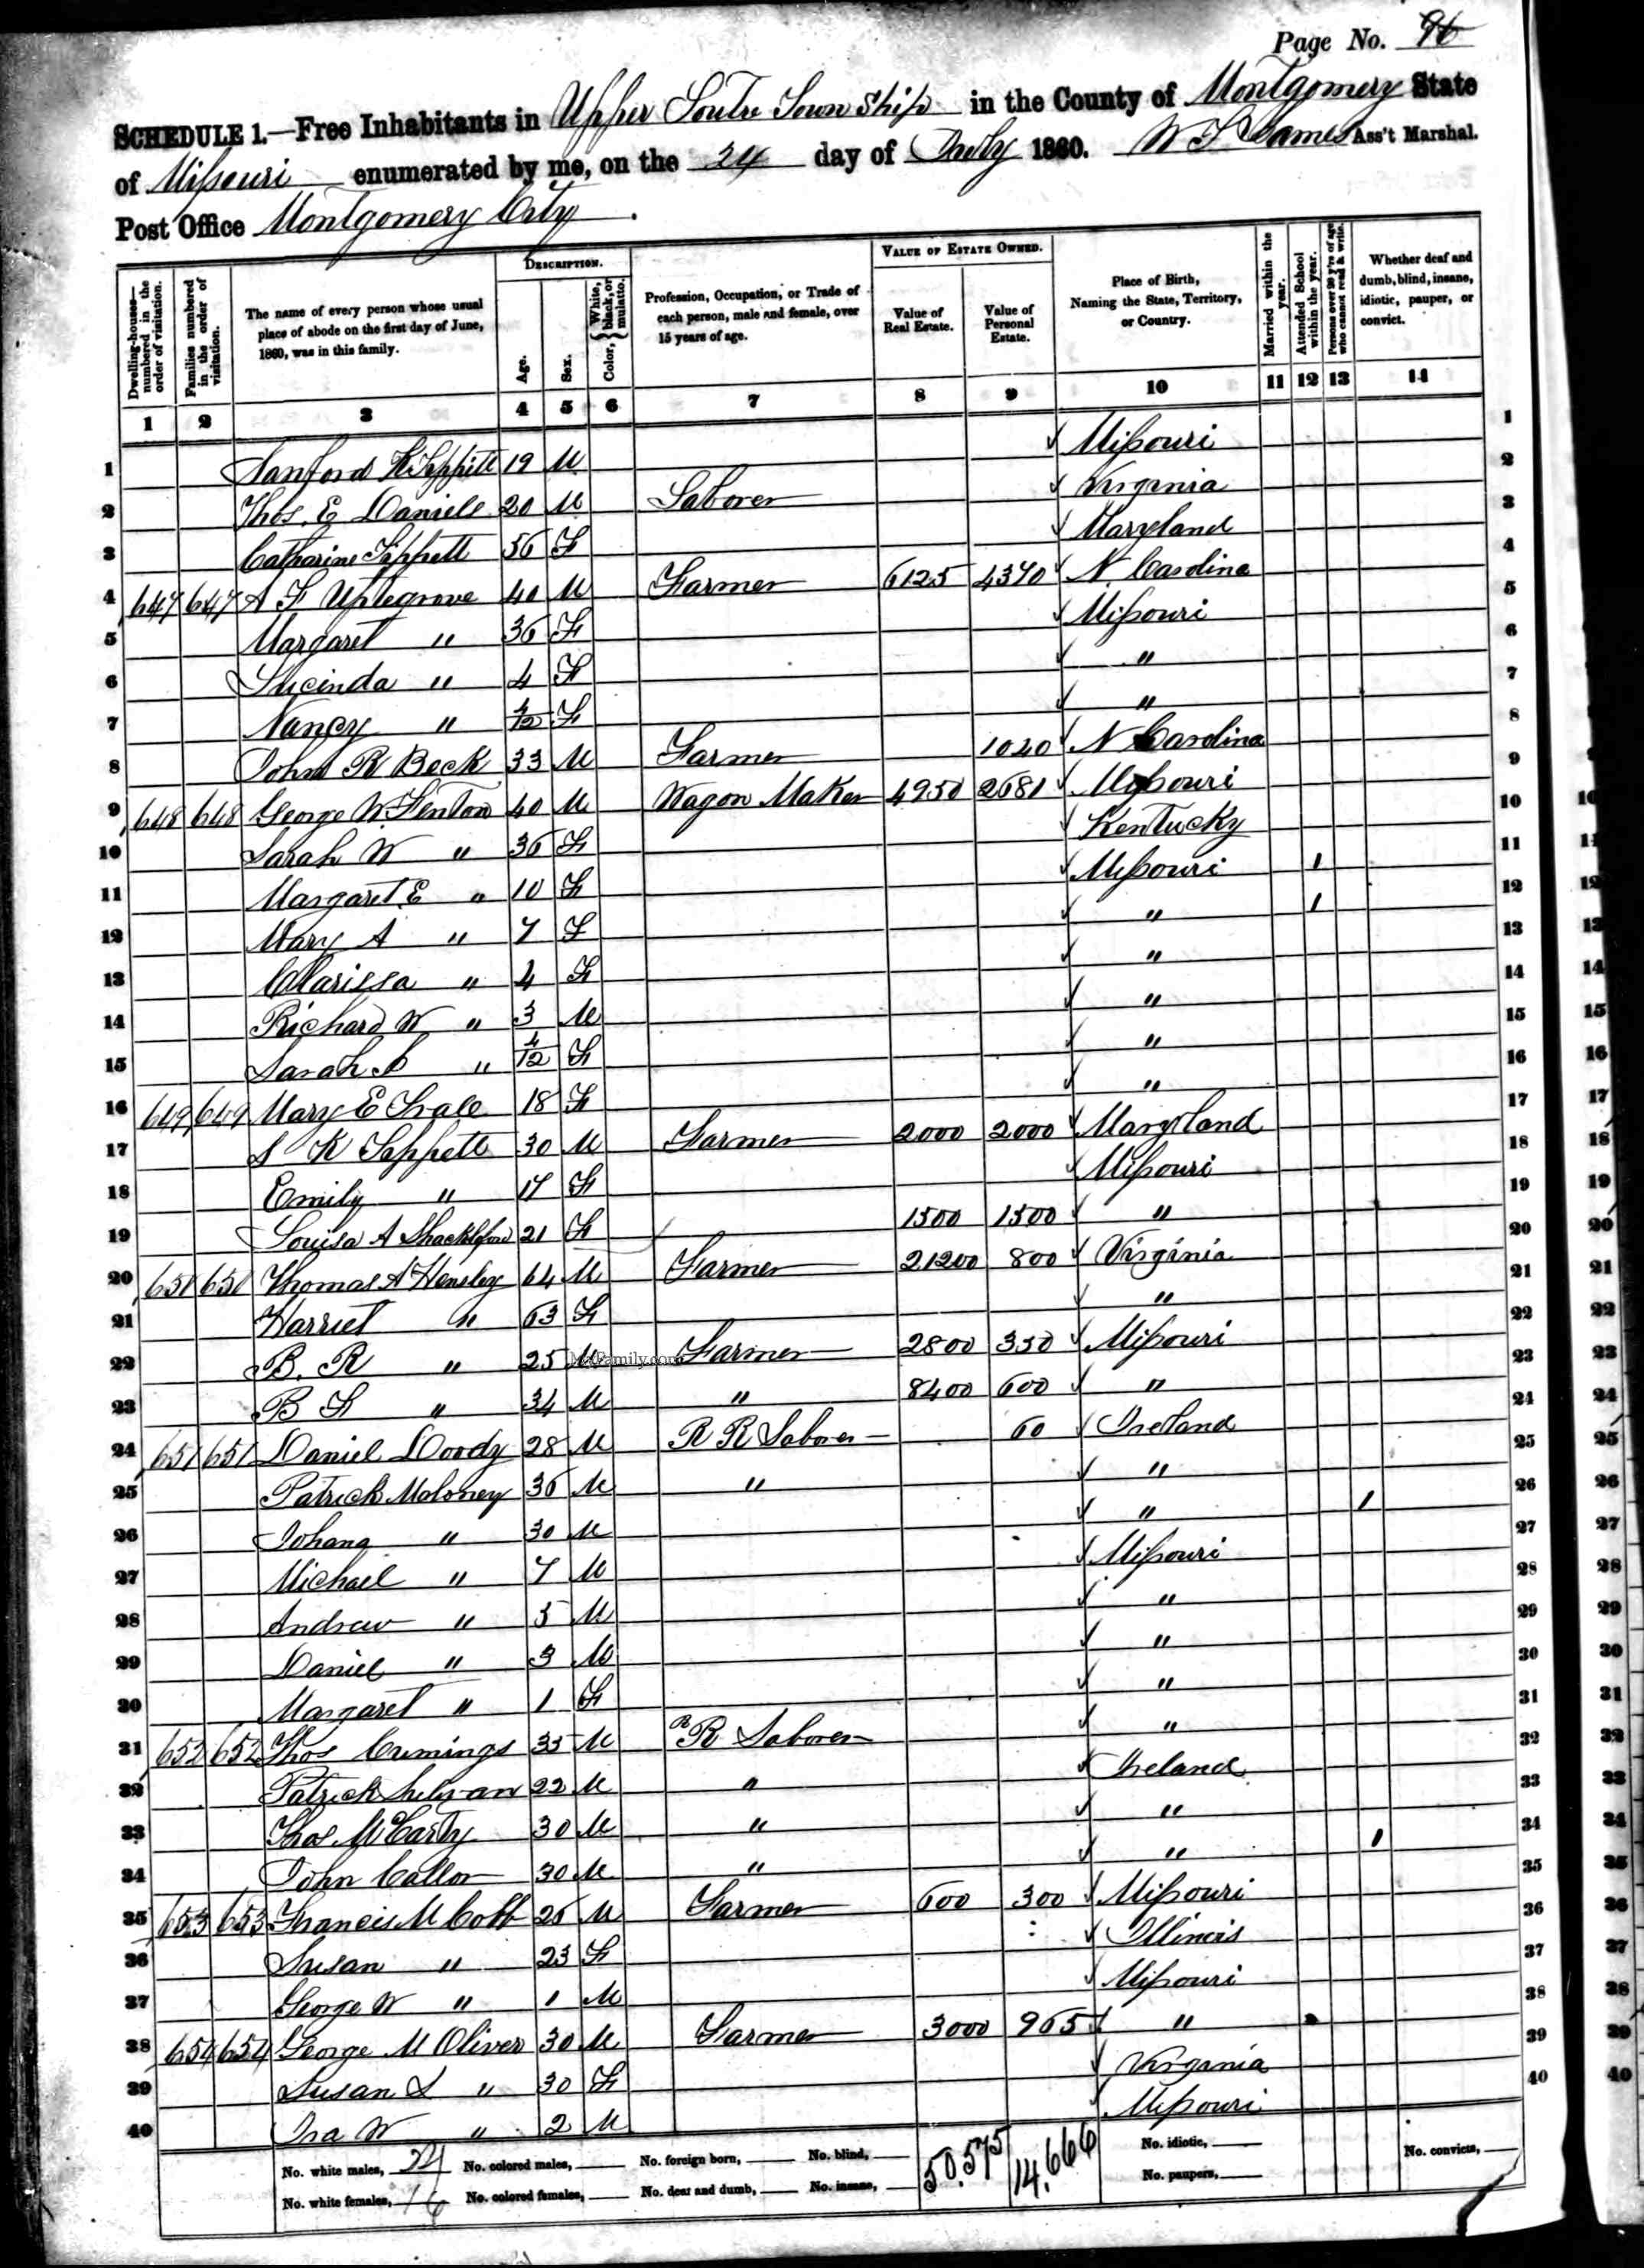 Page No. 96
SCHEDULE 1.—Free Inhabitants in Upper Loutre Township in the County of Montgomery State
of Missouri enumerated by me, on the 24 day of July 1860. Ass't Marshal.
Post Office Montgomery City.
Dwelling-houses—numbered in the order of visitation.
Families numbered in the order of visitation.
The name of every person whose usual place of abode on the first day of June, 1860, was in this family.
DESCRIPTION.
Age.
Sex.
Color, {White, black, or mulatto.
Profession, Occupation, or Trade of each person, male and female, over 15 years of age.
VALUE OF ESTATE OWNED.
Value of Real Estate.
Value of Personal Estate.
Place of Birth, Naming the State, Territory, or Country.
Married within the year.
Attended School within the year.
Persons over 20 y'rs of age who cannot read & write.
Whether deaf and dumb, blind, insane, idiotic, pauper, or convict.
1 2 3 4 5 6 7 8 9 10 11 12 13 14
1 Sanford 19 M Missouri 1
2 Thos. E Daniels 20 M Laborer Virginia 2
3 Catharine Tippett 56 F Maryland 3
4 647 647 A F Uptegrove 40 M Farmer 6125 4370 N. Carolina 4
5 Margaret " 36 F Missouri 5
6 Lucinda " 4 F " 6
7 Nancy " 4/12 F " 7
8 John R Beck 33 M Farmer 1020 N Carolina 8
9 648 648 George W. Fenton 40 M Wagon Maker 4950 2681 Missouri 9
10 Sarah W " 36 F Kentucky 10
11 Margaret E " 10 F Missouri 1 11
12 Mary A " 7 F " 1 12
13 Clarissa " 4 F " 13
14 Richard W " 3 M " 14
15 Sarah " 4/12 F " 15
16 649 649 Mary E 18 F " 16
17 S K Tippett 30 M Farmer 2000 2000 Maryland 17
18 Emily " 17 F Missouri 18
19 Louisa A 21 F 1500 1500 " 19
20 650 650 Thomas A Hensley 64 M Farmer 21200 800 Virginia 20
21 Harriet " 63 F " 21
22 B. R " 25 M Farmer 2800 350 Missouri 22
MyFamily.com
23 B F " 34 M " 8400 600 " 23
24 651 651 Daniel Doody 28 M R R Laborer 60 Ireland 24
25 Patrick Moloney 36 M " " 25
26 Johana " 30 M " 1 26
27 Michael " 7 M Missouri 27
28 Andrew " 5 M " 28
29 Daniel " 3 M " 29
30 Margaret " 1 F " 30
31 652 652 Thos Cumings 35 M R R Laborer " 31
32 Patrick 22 M " Ireland 32
33 Thos. McCarty 30 M " " 33
34 John 30 M " " 1 34
35 653 653 Francis M Cobb 26 M Farmer 600 300 Missouri 35
36 Susan " 23 F Illinois 36
37 George W " 1 M Missouri 37
38 654 654 George M Oliver 30 M Farmer 3000 965 " 38
39 Susan S " 30 F Virginia 39
40 Ira W " 2 M Missouri 40
No. white males, 24 No. colored males, No. foreign born, No. blind, 50.575 14.666 No. idiotic, No. convicts,
No. white females, 16 No. colored females, No. deaf and dumb, No. insane, No. paupers,